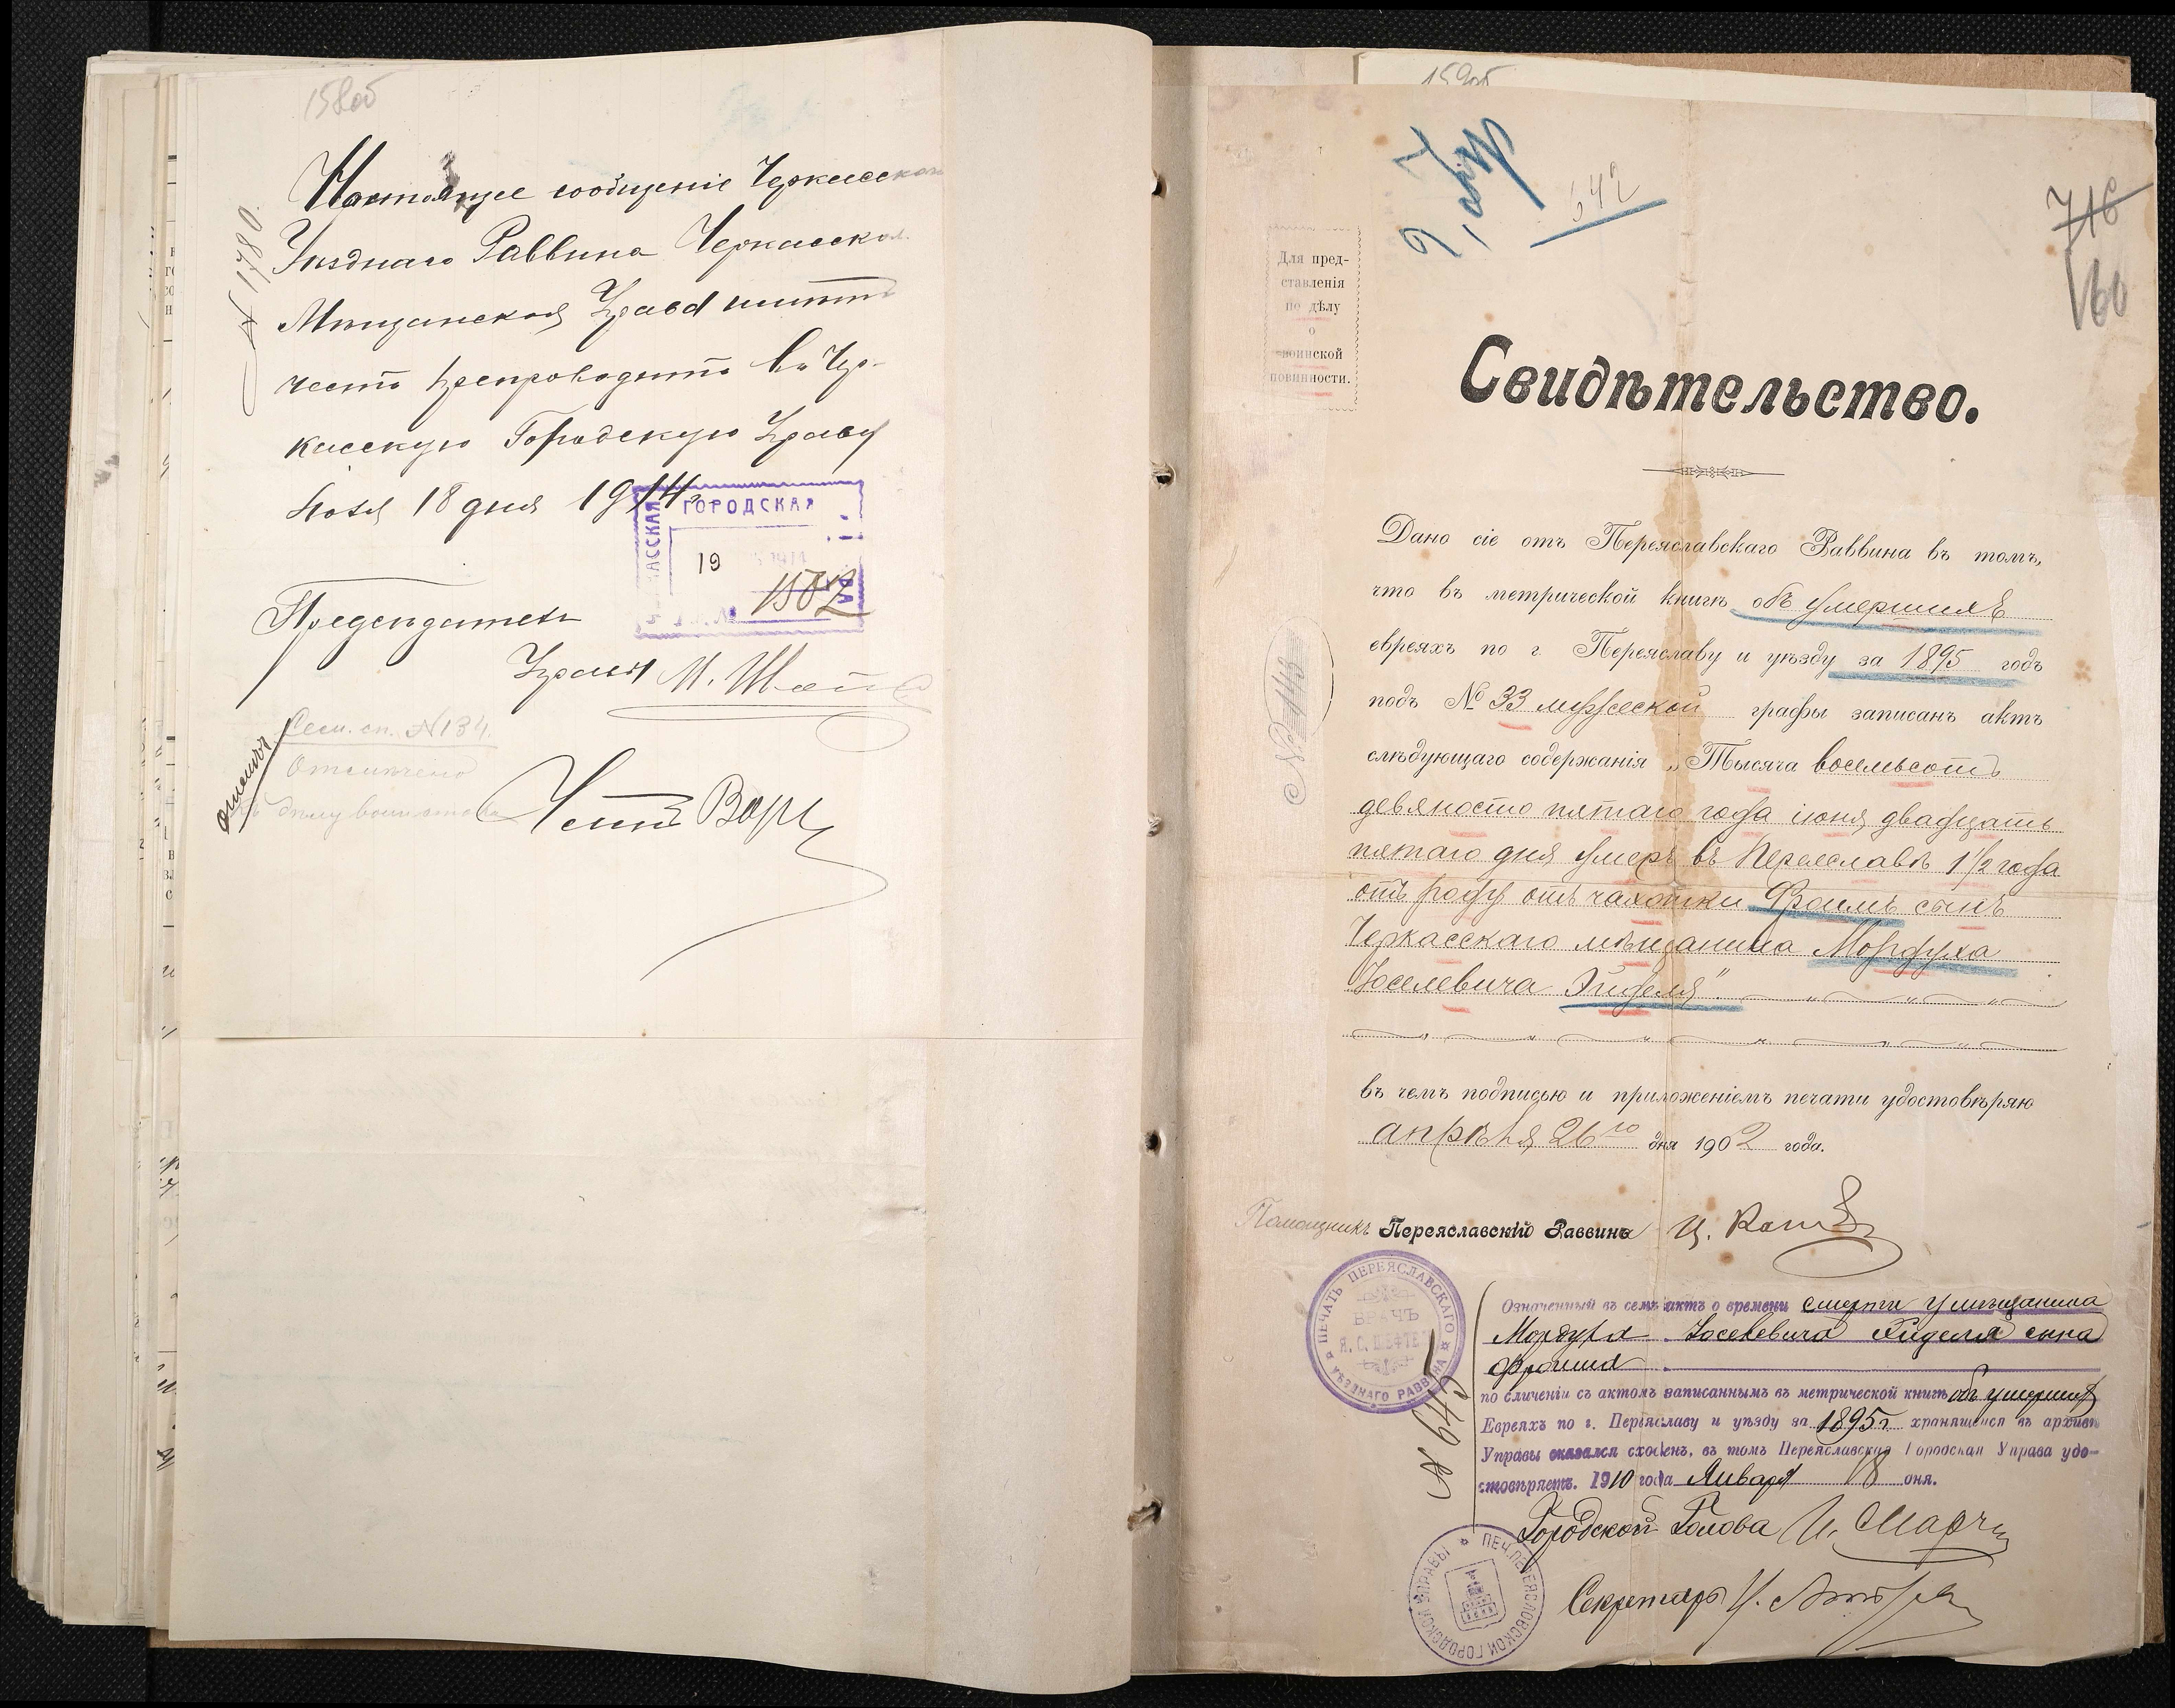 158об
Настоящее сообщеніе Черкасскаго
Уѣзднаго Раввина Черкасская
Мѣщанская Управа имѣетъ
честь препроводить въ Чер-
касскую Городскую Управу
Іюля 18 дня 1914 г.
№ 1780.
ГОРОДСКАЯ
19
1502
Предсѣдатель
Управы М. Шай
Сем. сп. № 134.
Отмѣчено
159об
716
160
542
Для пред-
ставленія
по дѣлу
о
воинской
повинности.
Свидѣтельство.
Дано сіе отъ Переяславскаго Раввина въ томъ,
что въ метрической книгѣ объ умершихъ
евреяхъ по г. Переяславу и уѣзду за 1895 годъ
подъ № 33 мужеской графы записанъ актъ
слѣдующаго содержанія „Тысяча восемьсотъ
девяносто пятаго года іюня двадцать
пятаго дня умеръ въ Переяславѣ 1½ года
отъ роду отъ чахотки Фроимъ сынъ
Черкасскаго мѣщанина Мордуха
Іоселевича Эйделя".
№ 113
въ чемъ подписью и приложеніемъ печати удостовѣряю
апрѣля 26го дня 1902 года.
Помощникъ Переяславскій Раввинъ
ПЕЧАТЬ ПЕРЕЯСЛАВСКАГО УѢЗДНАГО РАВВИНА
ВРАЧЪ
Означенный въ семъ актъ о времени смерти у мѣщанина
Мордуха Іоселевича Эйделя сына
Фроима
по сличеніи съ актомъ записаннымъ въ метрической книгѣ объ умершихъ
Евреяхъ по г. Переяславу и уѣзду за 1895 г. хранящейся въ архивѣ
Управы оказался сходенъ, въ томъ Переяславская Городская Управа удо-
стовѣряетъ. 1910 года Января 18 дня.
№ 649
Городской Голова
Секретарь
ПЕЧ. ПЕРЕЯСЛОВСКОЙ ГОРОДСКОЙ УПРАВЫ